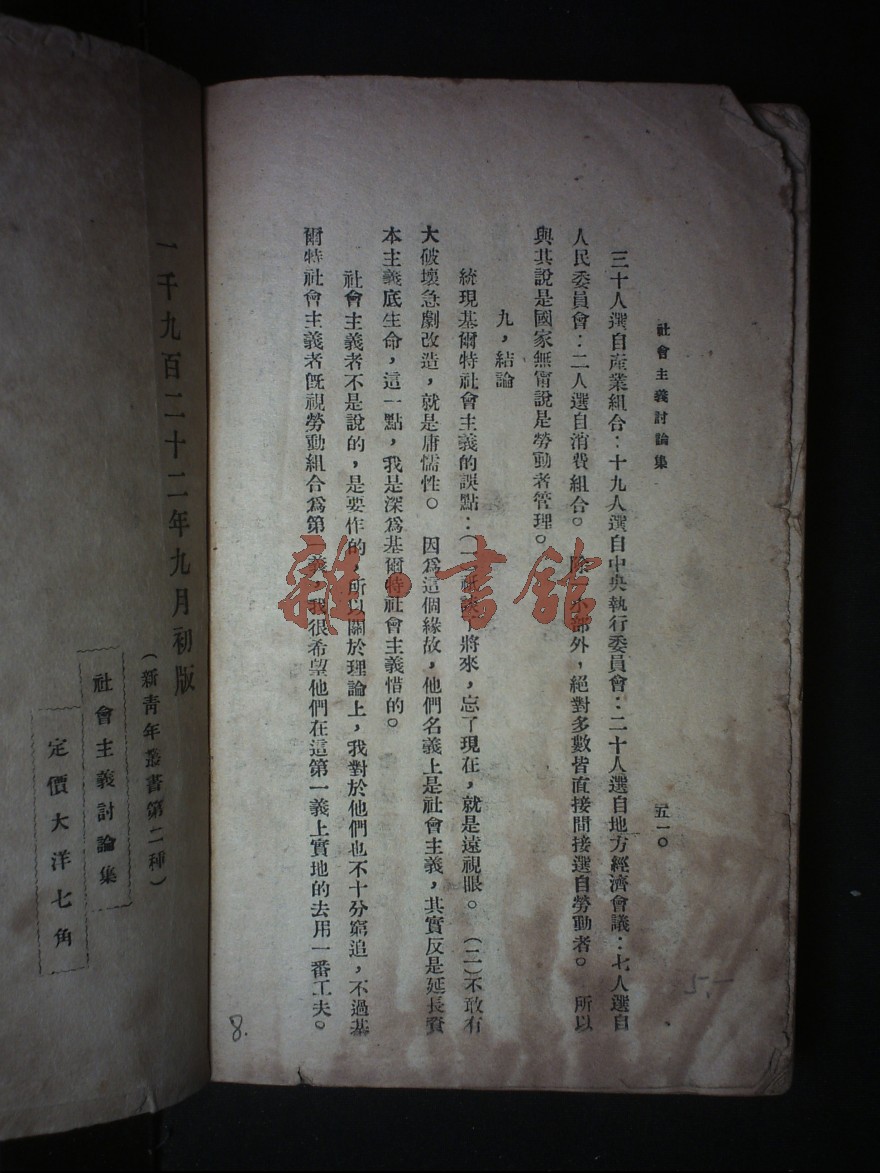 社會主義討論集
五一〇
三十人選自產業組合：十九人選自中央執行委員會：二十人選自地方經濟會議：七人選自
人民委員會：二人選自消費組合。除一小部外，絕對多數皆直接間接選自勞動者。所以
與其說是國家無甯說是勞動者管理。
九，結論
統現基爾特社會主義的誤點：(一)祇談了將來，忘了現在，就是遠視眼。(二)不敢有
大破壞急劇改造，就是庸懦性。因爲這個緣故，他們名義上是社會主義，其實反是延長資
本主義底生命，這一點，我是深爲基爾特社會主義惜的。
社會主義者不是說的，是要作的，所以關於理論上，我對於他們也不十分窮追，不過基
爾特社會主義者旣視勞動組合爲第一義，我很希望他們在這第一義上實地的去用一番工夫。
8.
雜·書館
一千九百二十二年九月初版
(新靑年叢書第二種)
社會主義討論集
定價大洋七角